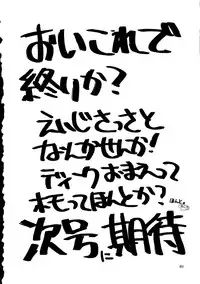 おいこれで
終りか?
えいじさっさと
なんかせんか!
ディークおまえって
ホモってほんとか?
次号に期待